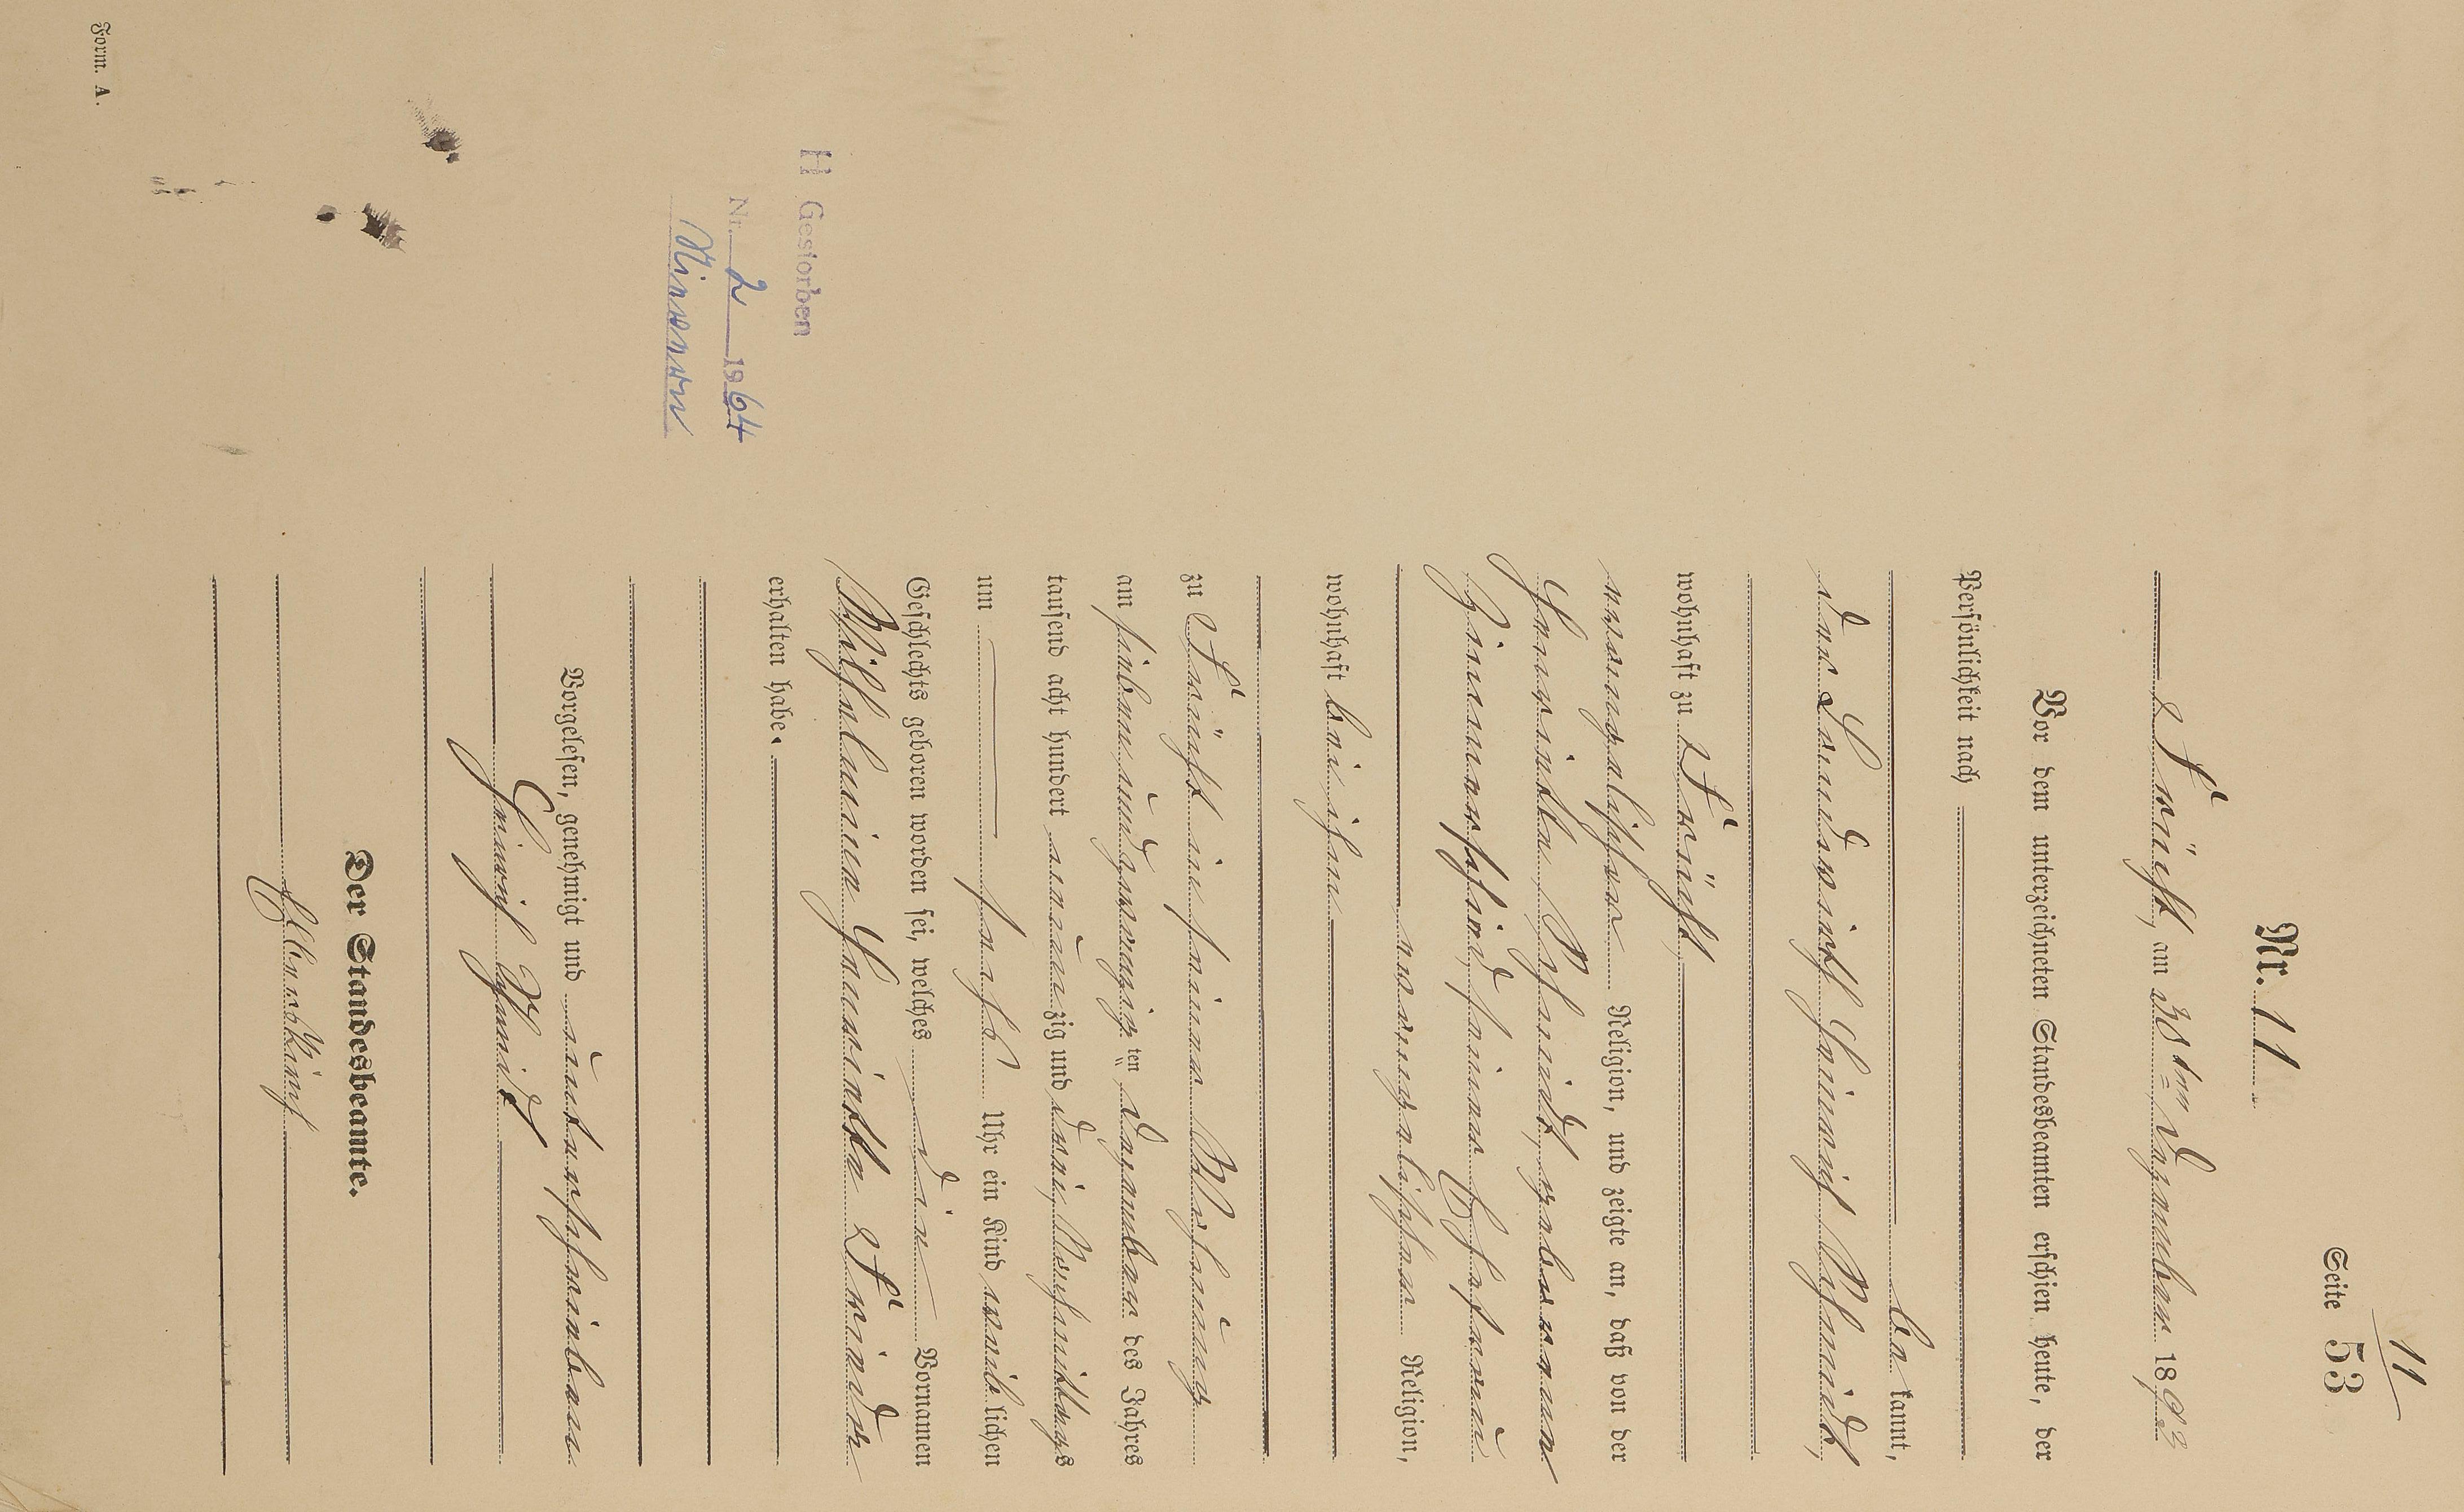 11
Seite 53
Nr. 11
Frücht, am 30ten Dezember 1893
Vor dem unterzeichneten Standesbeamten erschien heute, der
Persönlichkeit nach
be kannt,
der Landwirth Heinrich Schmidt,
wohnhaft zu Frücht
evangelischer Religion, und zeigte an, daß von der
Henriette Schmidt, geborenen
Zimmerschied, seiner Ehefrau
evangelischer Religion,
wohnhaft bei ihm
zu Frücht in seiner Wohnung
am sieben und zwanzig ten Dezember des Jahres
tausend acht hundert neunzig und drei, Nachmittags
um sechs Uhr ein Kind weib lichen
Geschlechts geboren worden sei, welches die Vornamen
Wilhelmine Henriette Frieda
erhalten habe.
Vorgelesen, genehmigt und unterschrieben
Heinrich Schmidt
Der Standesbeamte.
H Gestorben
Nr. 2 1964
Nievern
Form. A.